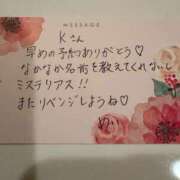 MESSAGE
Kさん
早めの予約ありがとう♡
なかなか名前を教えてくれないと
ミステリアス!!
またリベンジしようね♡